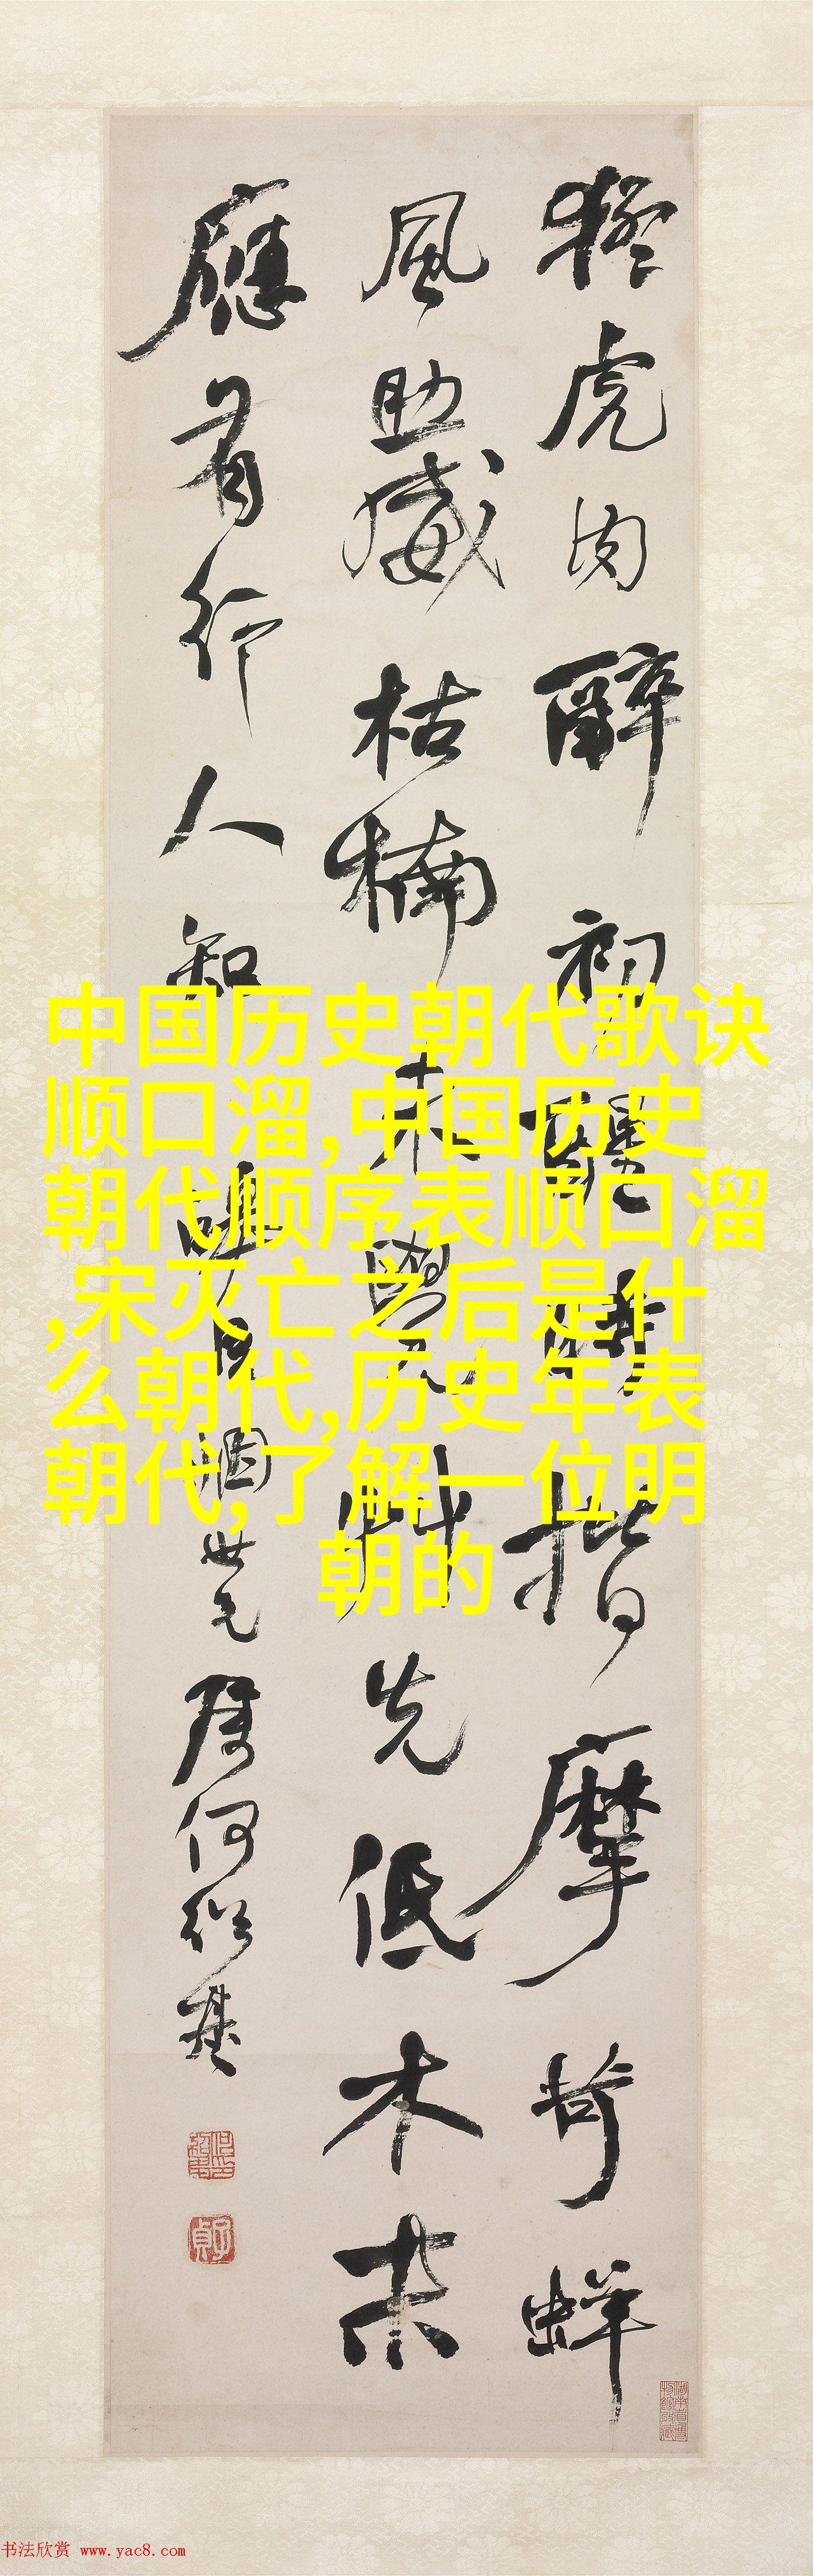 猛虎肉醉初醒時揩摩苛痒
風助威枯楠未覺風先低木末
應有行人知
世兄屬何紹基
中国历史朝代歌诀
顺口溜,中国历史
朝代顺序表顺口溜
,宋灭亡之后是什
么朝代,历史年表
朝代,了解一位明
朝的
书法欣赏 www.yac8.com